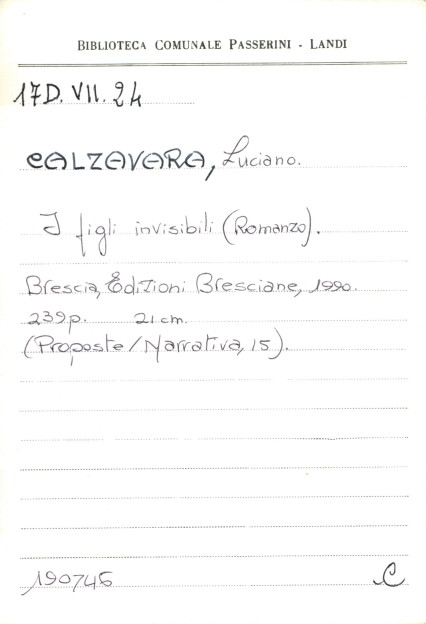 BIBLIOTECA COMUNALE PASSERINI - LANDI
17D. VII. 24
CALZAVARA, Luciano.
I figli invisibili (Romanzo).
Brescia, Edizioni Bresciane, 1990.
239p. 21 cm.
(Proposte/Narrativa, 15).
190746 C